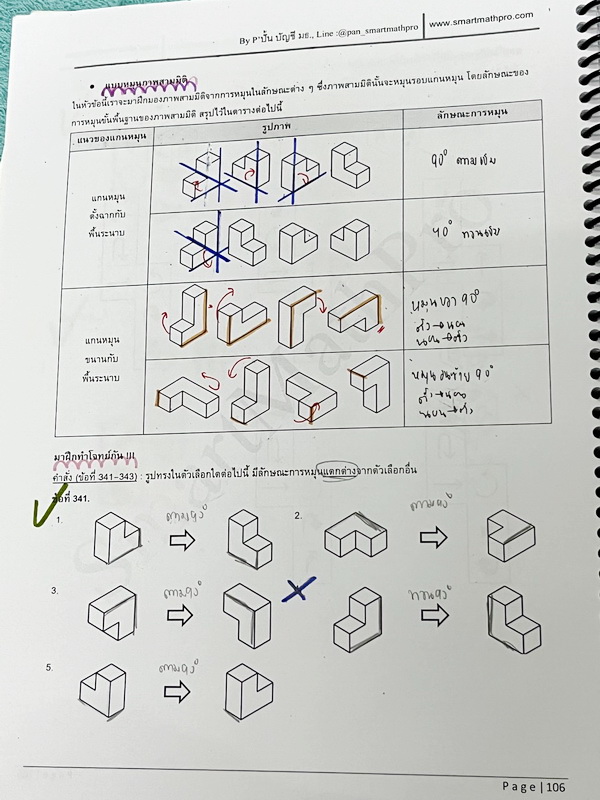 By P'ปั้น บัญชี มธ., Line :@pan_smartmathpro | www.smartmathpro.com
• แบบหมุนภาพสามมิติ
ในหัวข้อนี้เราจะมาฝึกมองภาพสามมิติจากการหมุนในลักษณะต่าง ๆ ซึ่งภาพสามมิตินั้นจะหมุนรอบแกนหมุน โดยลักษณะของ
การหมุนขั้นพื้นฐานของภาพสามมิติ สรุปไว้ในตารางต่อไปนี้
แนวของแกนหมุน รูปภาพ ลักษณะการหมุน
แกนหมุน
ตั้งฉากกับ
พื้นระนาบ
90° ตามเข็ม
90° ทวนเข็ม
แกนหมุน
ขนานกับ
พื้นระนาบ
หมุนขวา 90°
ตั้ง→นอน
นอน→ตั้ง
หมุนซ้าย 90°
ตั้ง→นอน
นอน→ตั้ง
มาฝึกทำโจทย์กัน !!!
คำสั่ง (ข้อที่ 341-343) : รูปทรงในตัวเลือกใดต่อไปนี้ มีลักษณะการหมุนแตกต่างจากตัวเลือกอื่น
ข้อที่ 341.
1. ตาม90° 2. ตาม90°
3. ตาม90° ทวน90°
5. ตาม90°
Page | 106